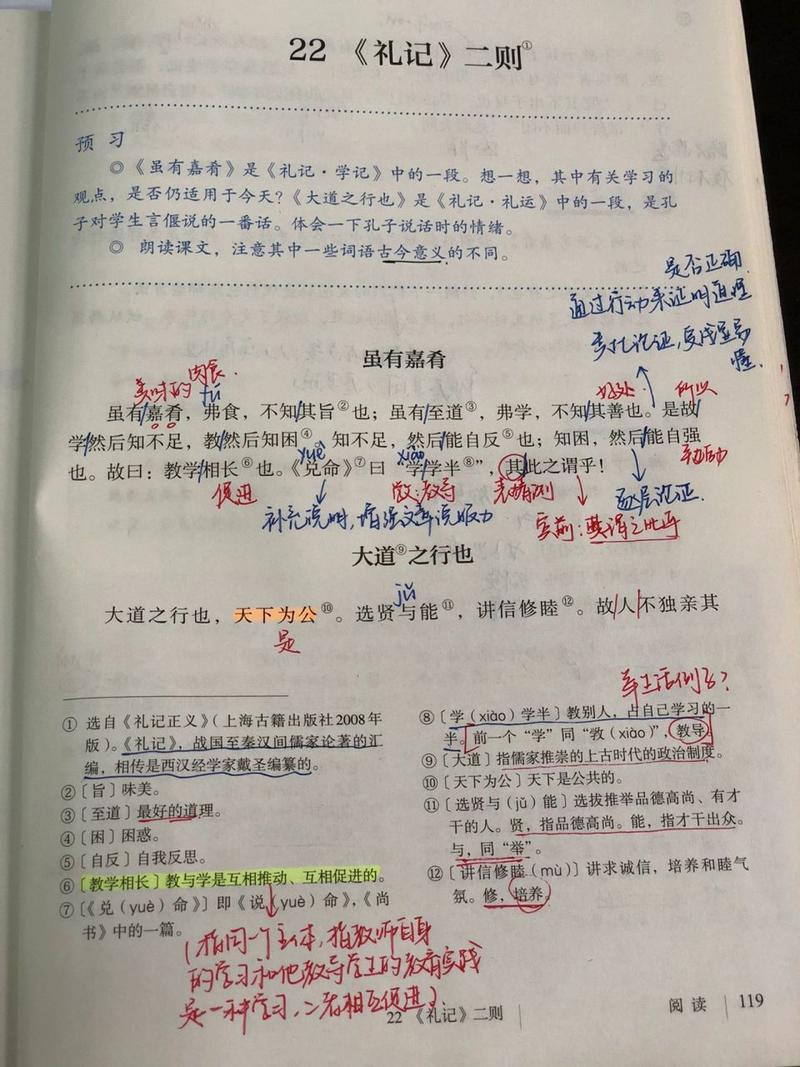 22 《礼记》二则①
预 习
◎《虽有嘉肴》是《礼记·学记》中的一段。想一想，其中有关学习的
观点，是否仍适用于今天？《大道之行也》是《礼记·礼运》中的一段，是孔
子对学生言偃说的一番话。体会一下孔子说话时的情绪。
◎ 朗读课文，注意其中一些词语古今意义的不同。
是否正确
通过行动来证明道理
类比论证，变浅显易
懂。
虽有嘉肴
美味的 肉食.
好处 所以
虽有嘉肴，弗食，不知其旨②也；虽有至道③，弗学，不知其善也。是故
学然后知不足，教然后知困④。知不足，然后能自反⑤也；知困，然后能自强
yuè xiào
也。故曰：教学相长⑥也。《兑命》⑦曰“学学半⑧”，其此之谓乎！
促进 教导 表推测 逐层论证.
补充说明，增强文章说服力 宾前：其谓之此乎
大道⑨之行也
jǔ
大道之行也，天下为公⑩。选贤与能⑪，讲信修睦⑫。故人不独亲其
是
举生活例子？
① 选自《礼记正义》（上海古籍出版社2008年
版）。《礼记》，战国至秦汉间儒家论著的汇
编，相传是西汉经学家戴圣编纂的。
②〔旨〕味美。
③〔至道〕最好的道理。
④〔困〕困惑。
⑤〔自反〕自我反思。
⑥〔教学相长〕教与学是互相推动、互相促进的。
⑦〔《兑（yuè）命》〕即《说（yuè）命》，《尚
书》中的一篇。
⑧〔学（xiào）学半〕教别人，占自己学习的一
半。前一个“学”同“敩（xiào）”，教导。
⑨〔大道〕指儒家推崇的上古时代的政治制度。
⑩〔天下为公〕天下是公共的。
⑪〔选贤与（jǔ）能〕选拔推举品德高尚、有才
干的人。贤，指品德高尚。能，指才干出众。
与，同“举”。
⑫〔讲信修睦（mù）〕讲求诚信，培养和睦气
氛。修，培养。
（指同一个主体，指教师自身
的学习和他教导学生的教育实践
是一种学习，二者相互促进）
22 《礼记》二则
阅读 119